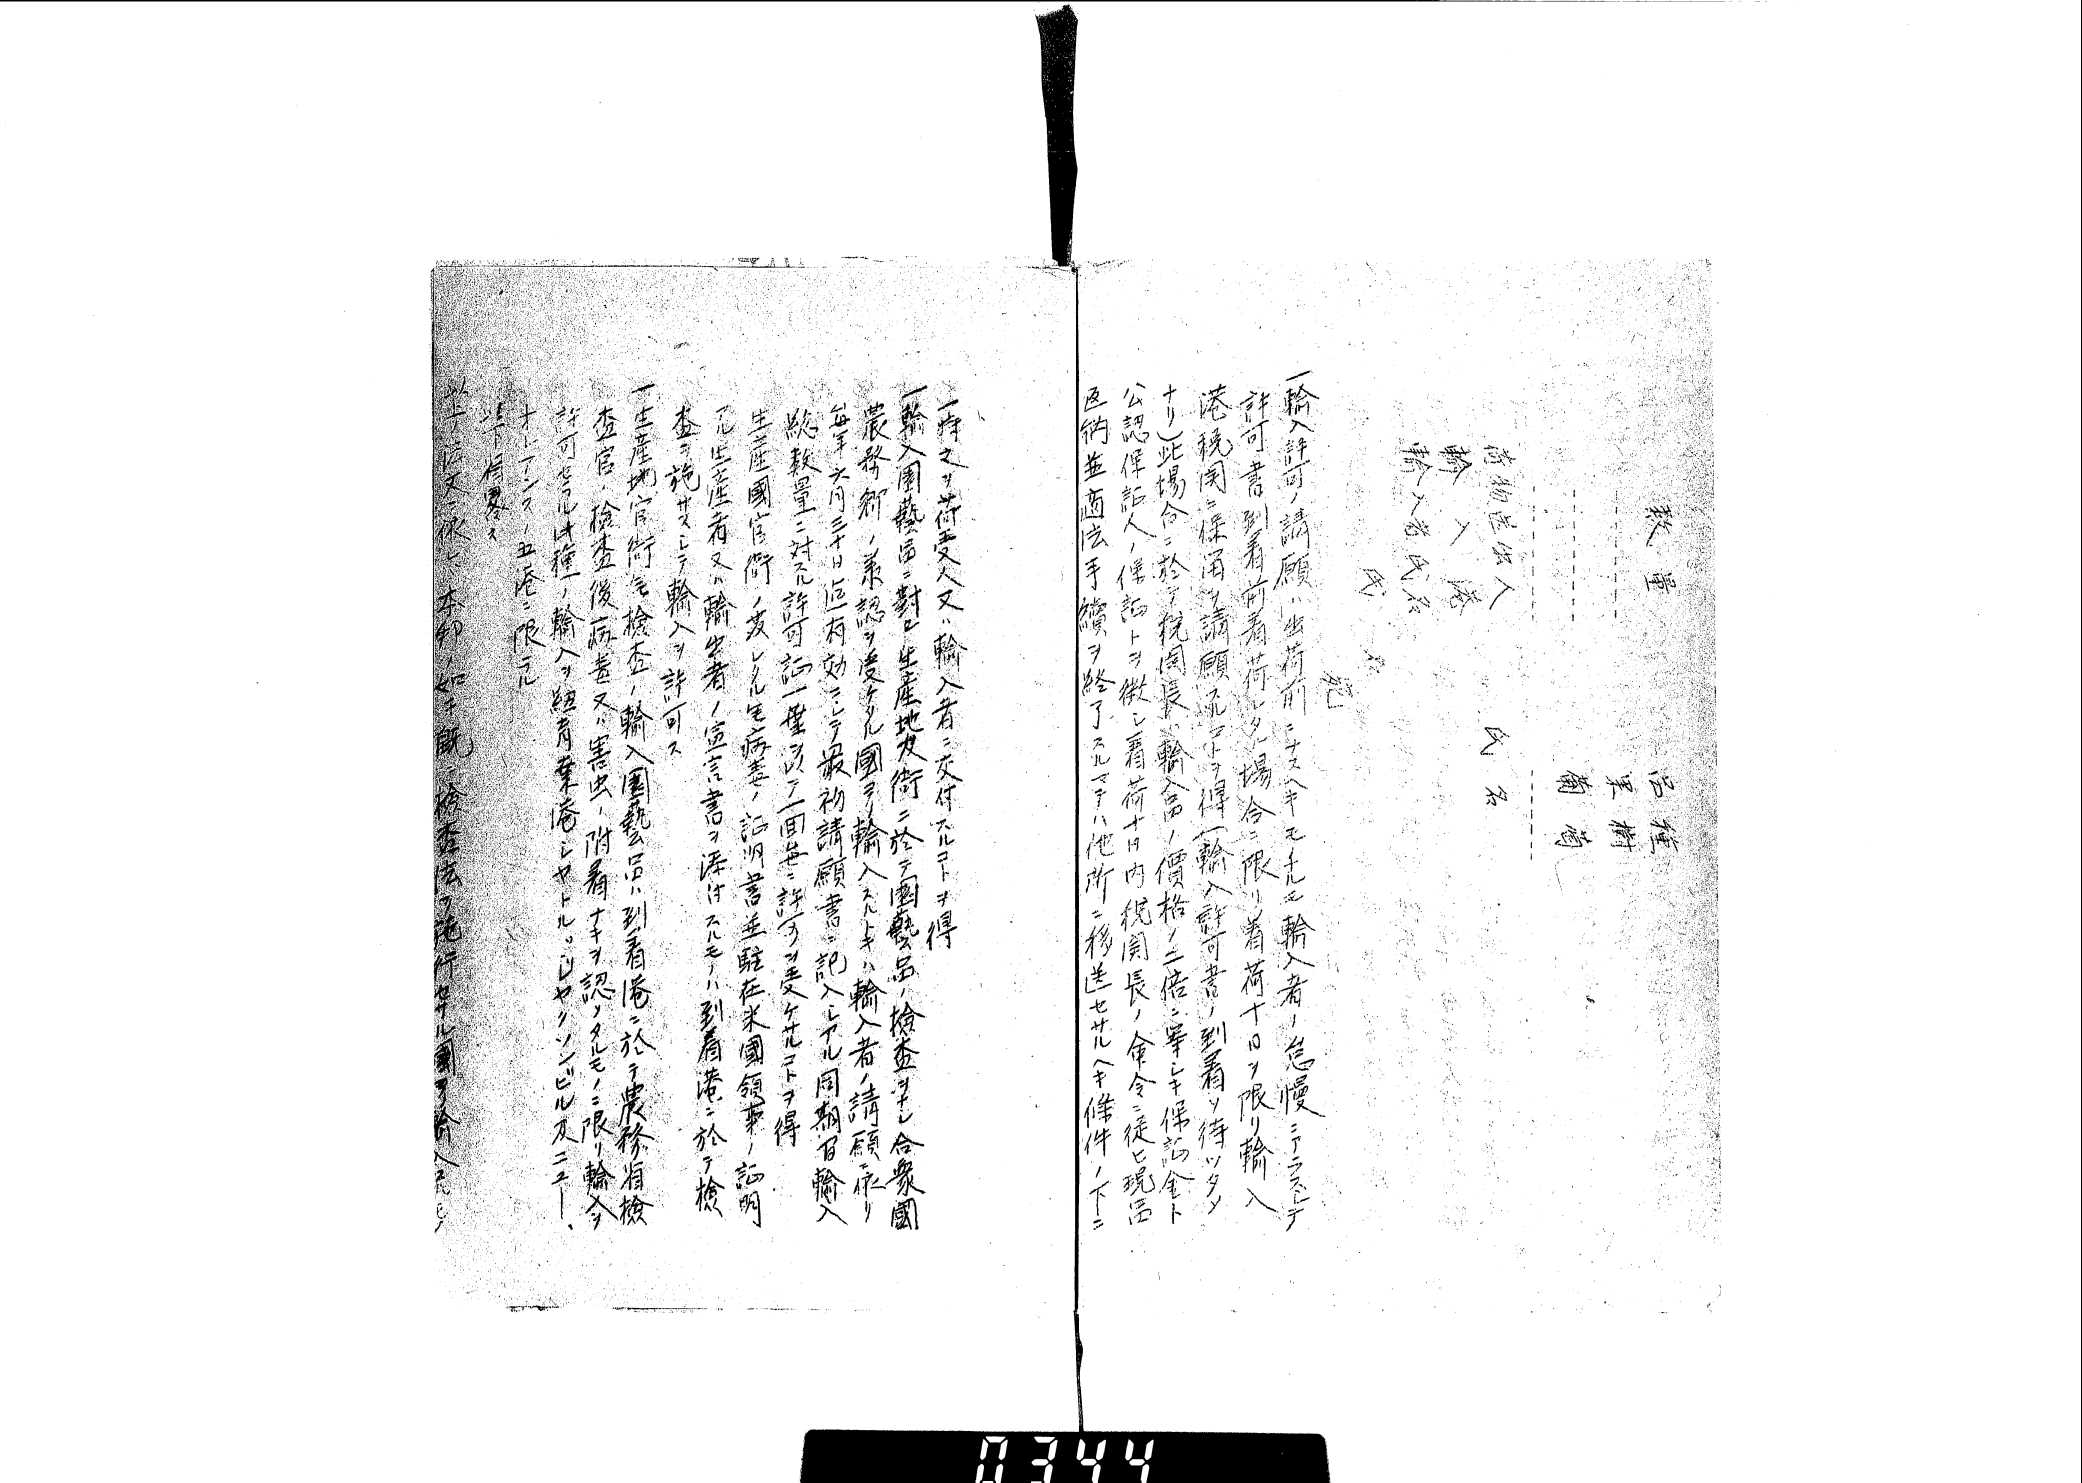 數量 品種
果樹
葡萄
荷物差出人 氏名
輸入港
輸入者氏名
氏名
宛
一輸入許可ノ請願ハ出荷前ニナスヘキモノナルモ輸入者ノ怠慢ニアラスシテ
許可書到着前着荷シタル場合ニ限リ着荷十日ヲ限リ輸入
港税関ニ保留ヲ請願スルコトヲ得(輸入許可書ノ到着ヲ待ツタメ
ナリ)此場合ニ於テ税関長ハ輸入品ノ價格ノ二倍ニ等シキ保証金ト
公認保証人ノ保証トヲ徴シ着荷十日内税関長ノ命令ニ従ヒ現品
返納並適法手續ヲ終了スルマテハ他所ニ移送セサルヘキ條件ノ下ニ
一時之ヲ荷受人又ハ輸入者ニ交付スルコトヲ得
一輸入園藝品ニ對シ生産地官衙ニ於テ園藝品ノ検査ヲナシ合衆國
農務卿ノ承認ヲ受ケタル國ヨリ輸入スルトキハ輸入者ノ請願ニ依リ
毎年六月三十日迄有効ニシテ最初請願書ニ記入シアル同期間輸入
総数量ニ対スル許可証一葉ヲ以テ一回毎ニ許可ヲ受ケサルコトヲ得
生産國官衙ノ発シタル無病蟲ノ証明書並駐在米國領事ノ証明
アル生産者又ハ輸出者ノ宣言書ヲ添付スルモノハ到着港ニ於テ検
査ヲ施サスシテ輸入ヲ許可ス
一生産地官衙無検査ノ輸入園藝品ハ到着港ニ於テ農務省検
査官ノ検査後病蟲又ハ害虫ノ附着ナキヲ認メタルモノニ限リ輸入ヲ
許可セラル此種ノ輸入ヲ紐育桑港シヤトル、ジヤクソンビル及ニユー、
オレアンスノ五港ニ限ラル
以下省畧ス
以上法文ニ依レハ本邦ノ如キ既ニ検査法ヲ施行セサル國ヨリ輸入